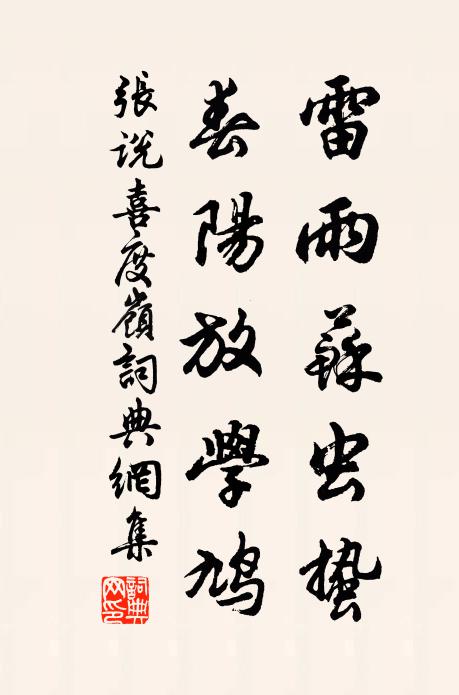 雷雨蘇虫蟄
春陽放學鳩
張説喜度嶺詞典網集
詞典网印